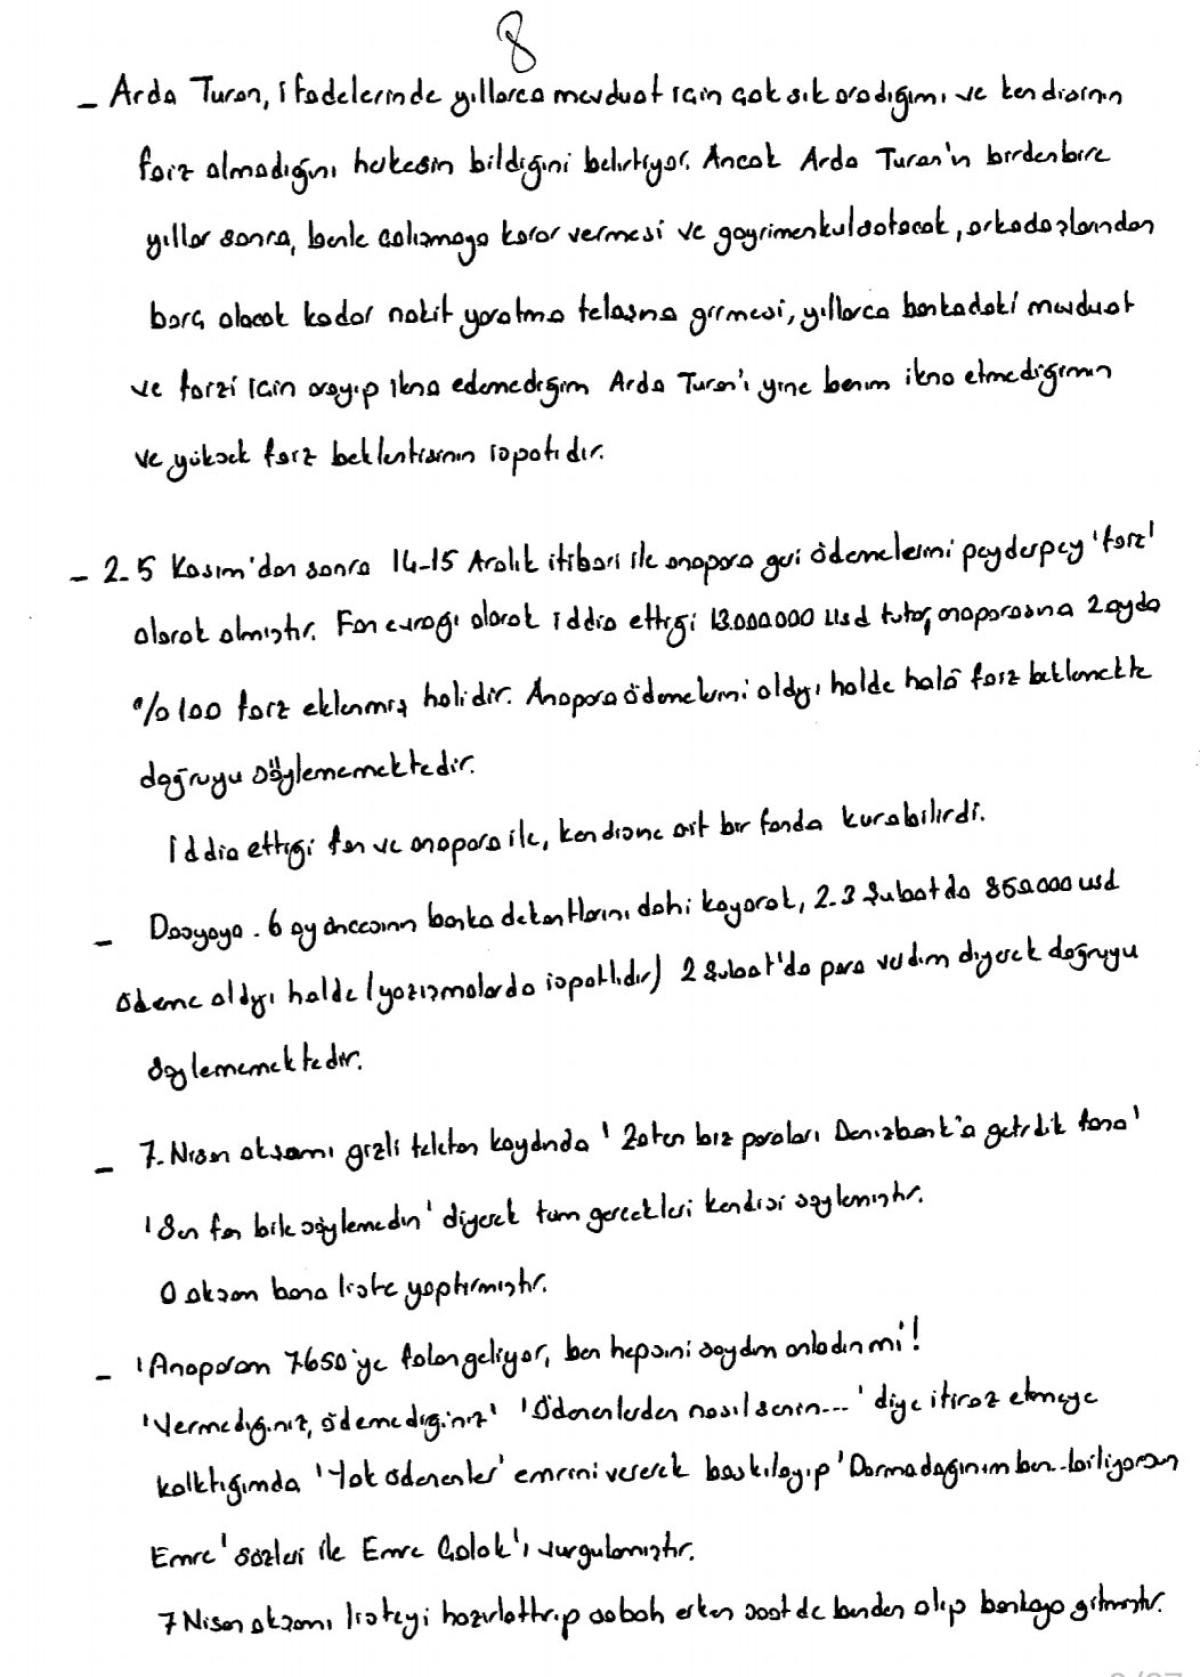 8
- Arda Turan, ifadelerinde yıllarca mevduat için çok sık aradığımı ve kendisinin
faiz almadığını herkesin bildiğini belirtiyor. Ancak Arda Turan'ın birdenbire
yıllar sonra, benle çalışmaya karar vermesi ve gayrimenkul satacak, arkadaşlarından
borç alacak kadar nakit yaratma telaşına girmesi, yıllarca bankadaki mevduat
ve faizi için arayıp ikna edemediğim Arda Turan'ı yine benim ikna etmediğimin
ve yüksek faiz beklentisinin ispatıdır.
- 2.5 Kasım'dan sonra 14-15 Aralık itibari ile anapara geri ödemelerini peyderpey 'faiz'
olarak almıştır. Fon evrağı olarak iddia ettiği 13.000.000 usd tutar, anaparasına 2 ayda
%100 faiz eklenmiş halidir. Anapara ödemelerini aldığı halde halâ faiz beklemekte
doğruyu söylememektedir.
İddia ettiği fon ve anapara ile, kendisine ait bir fonda kurabilirdi.
- Dosyaya . 6 ay öncesinin banka dekontlarını dahi koyarak, 2.3 Şubatda 850.000 usd
ödeme aldığı halde (yazışmalarda ispatlıdır) 2 Şubat'da para verdim diyerek doğruyu
söylememektedir.
- 7. Nisan akşamı gizli telefon kaydında ' Zaten biz paraları Denizbank'a getirdik fona'
'Sen fon bile söylemedin' diyerek tüm gerçekleri kendisi söylemiştir.
O akşam bana liste yaptırmıştır.
- 'Anaparam 7.650'ye falan geliyor, ben hepsini saydım anladın mı'!
'Vermediğiniz, ödemediğiniz' 'Ödenenlerden nasıl senin...' diye itiraz etmeye
kalktığımda 'Yok ödenenler' emrini vererek baskılayıp 'Darmadağınım ben..biliyorsun
Emre' sözleri ile Emre Çolak'ı vurgulamıştır.
7 Nisan akşamı listeyi hazırlattırıp sabah erken saatde benden alıp bankaya gitmiştir.